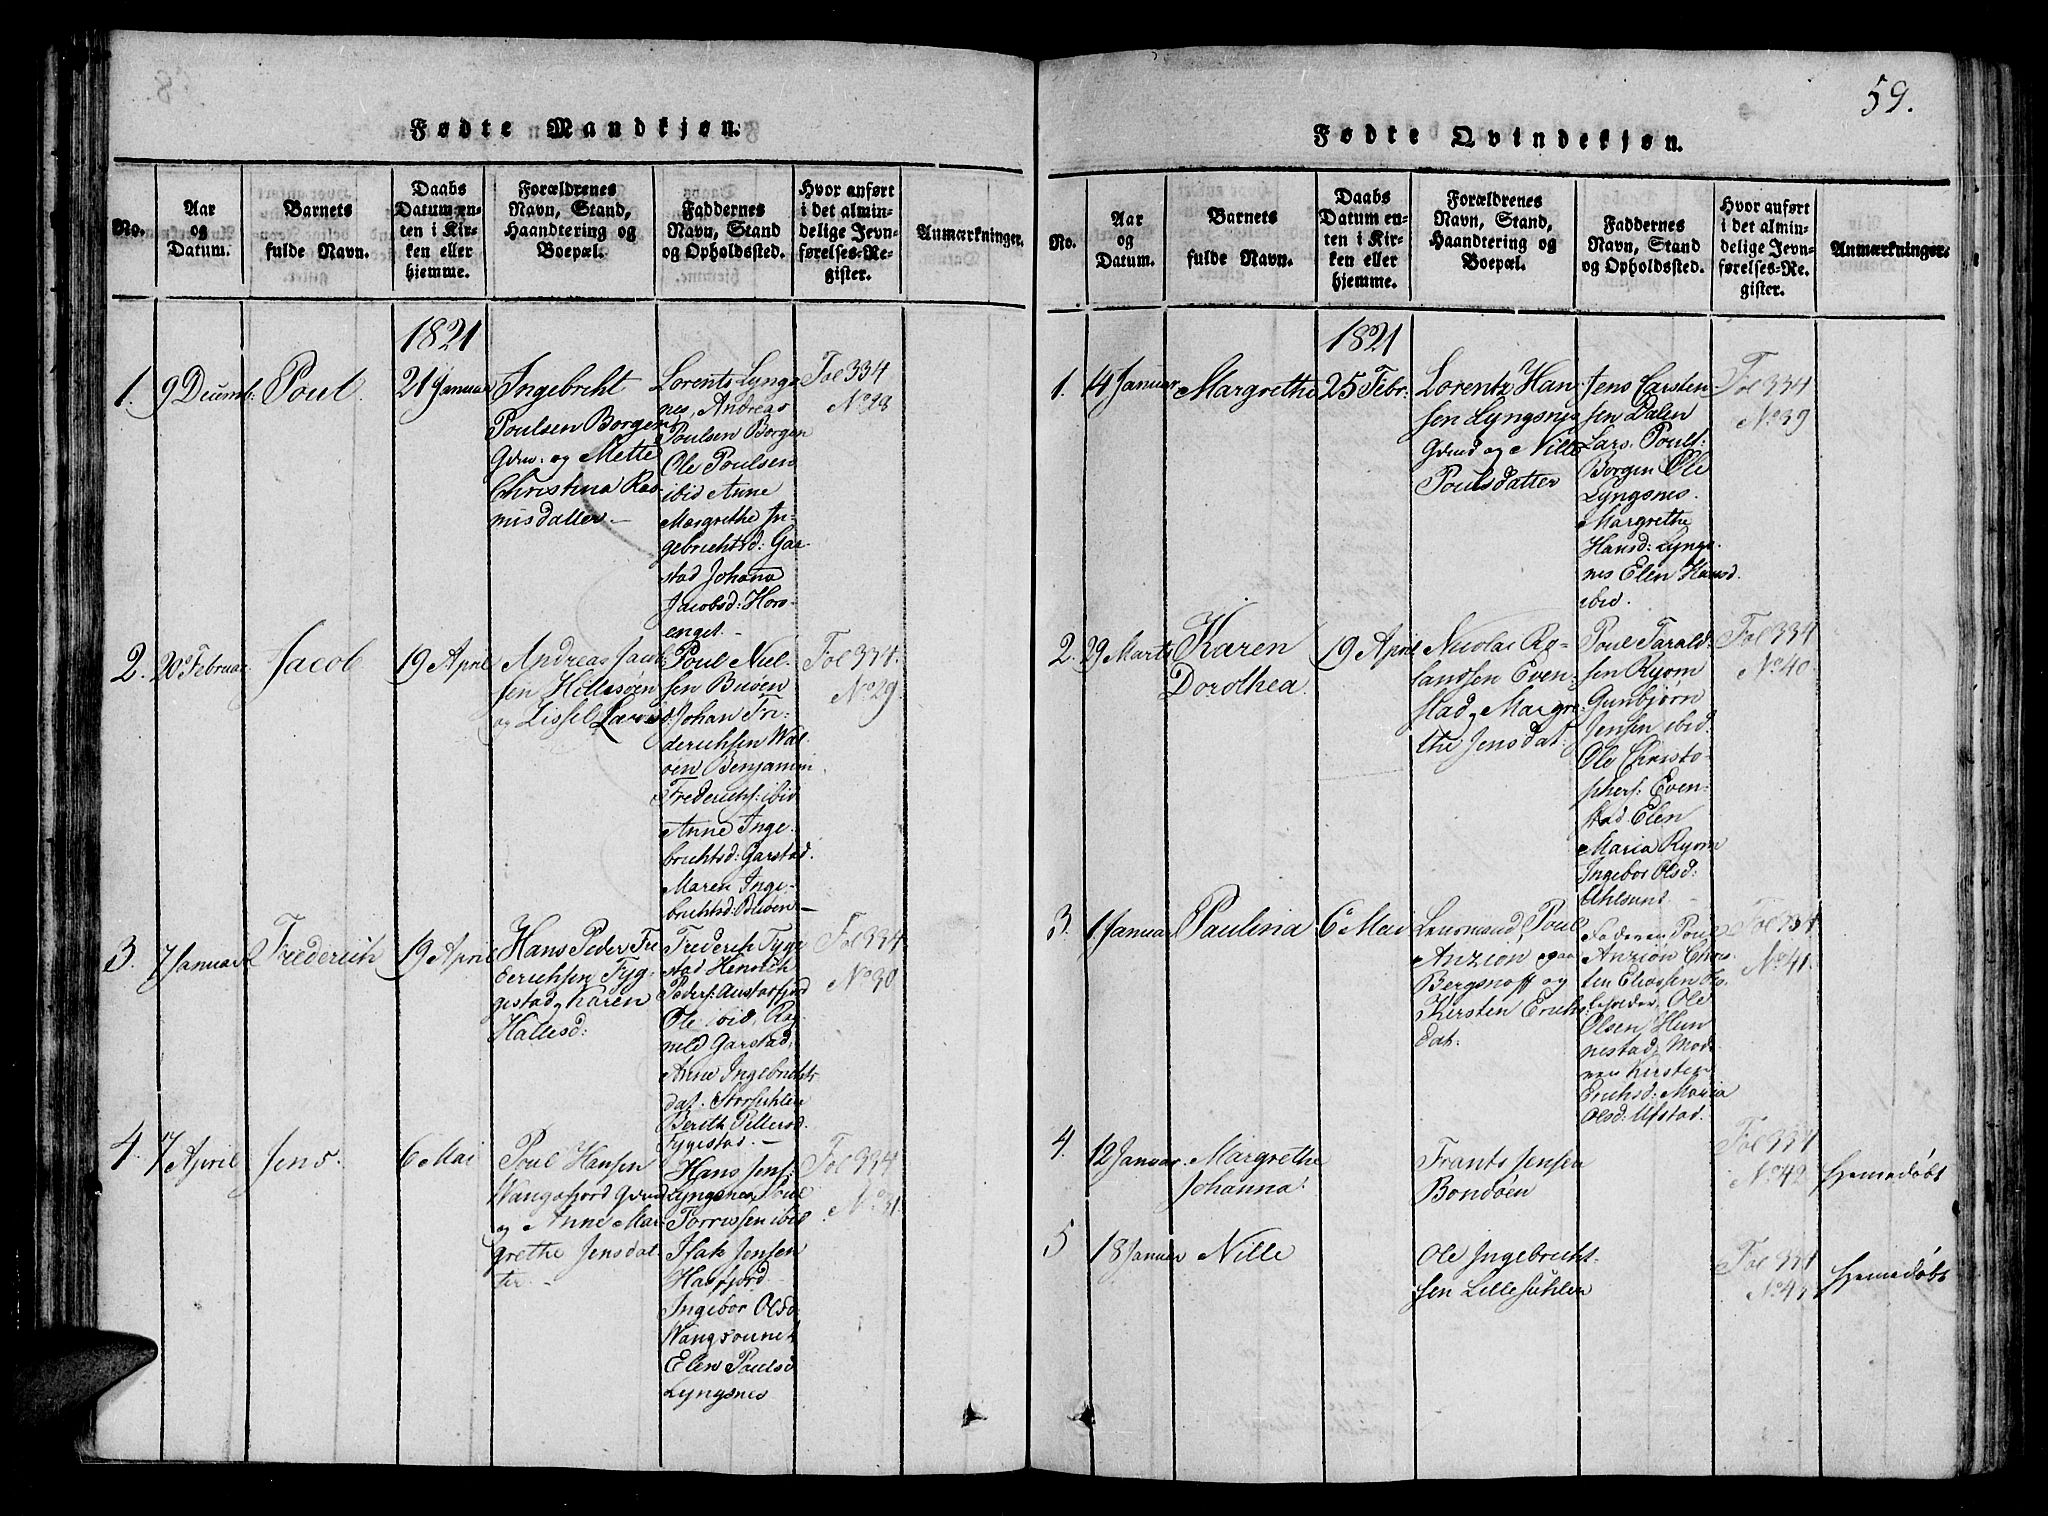 Fødte Mandkjøn.
No.
Aar og Datum.
Barnets fulde Navn.
Daabs Datum enten i Kirken eller hjemme.
Forældrenes Navn, Stand, Haandtering og Boepæl.
Faddernes Navn, Stand og Opholdssted.
Hvor anført i det almindelige Jevnførelses-Register.
Anmærkninger.
1821
1. 9 Decemb: Poul. 21 Januar
Ingebricht
Poulsen Borgen
Gdm. og Mette
Christina Ras
misdatter
Lorents Lyngs
nes, Andreas
Poulsen Borgen
Ole Poulsen
ibid Anne
Margrethe In-
gebrichtsd: Gar
stad Johana
Jacobsd: Hors-
enget.
Fol 334
No 28
2. 20 Februar Jacob 19 April
Andreas Jacob
sen Hillesøen
og Zissel Larisd:
Poul Niel
sen Buøen
Johan Fri-
derichsen Wal
øen Benjamin
Frederichs: ibid
Anne Inge-
brichtsd: Garstad.
Maren Inge-
brichtsd: Buøen
Fol 334.
No 29.
3. 7 Januar Frederich 19 April
Hans Peder Fre
derichsen Fyg-
gestad og Karen
Hallesd:
Frederich Fygge
stad Henrich
Peders: Austafjord
Ole ibid, Rag
neld Garstad,
Anne Ingebrichts
dat. Storsuhlen
Berith Pettersd
Fyggestad.
Fol 334
No 30
4. 17 April Jens. 6 Mai
Poul Hansen
Wangsfjord Gdmd
og Anne Mar
grethe Jensdat
ter.
Hans Jens:
Lyngsnes Poul
Torrissen ibid
Isak Jensen
Hasfjord
Ingebor Olsd:
Wangsounet
Elen Paulsd
Lyngsnes
Fol 334
No 31.
59.
Fødte Qvindekjøn.
No.
Aar og Datum.
Barnets fulde Navn.
Daabs Datum enten i Kirken eller hjemme.
Forældrenes Navn, Stand, Haandtering og Boepæl.
Faddernes Navn, Stand og Opholdssted.
Hvor anført i det almindelige Jevnførelses-Register.
Anmærkninger.
1821
1. 4 Januar Margrethe 25 Febr:
Lorentz Han
sen Lyngsnes
Gdmd og Nille
Poulsdatter
Jens Carsten
sen Dalen
Lars Pouls:
Borgen Ole
Lyngsnes.
Margrethe
Hansd: Lyngs
nes Elen Hansd.
ibid.
Fol 334
No 39
2. 29 Marts Karen
Dorothea. 19 April
Nicolai Ro-
landsen Even-
stad og Margre
the Jensdat:
Poul Tarald-
sen Ryom
Gunbjørn
Jensen ibid:
Ole Christo-
phers: Even-
stad Elen
Maria Ryom
Ingebor Olsd:
Uhlsund
Fol 334
No 40.
3. 1 Januar Paulina 6 Mai
Lensmand Poul
Anzion paa
Bergsnoff og
Kirsten Erichs
dat:
Faderen Poul
Anzion Chris
ten Eliassen
Ole
Olsen Hun
nestad, Mode
ren Kirsten
Erichsd: Maria
Olsd: Ufstad.
Fol 334
No 41.
4. 12 Januar. Margrethe
Johanna.
Frants Jensen
Bondøen
Fol 334
No 42
hjemedøbt
5 18 Januar Nille
Ole Ingebricht-
sen Lillesuhlen
Fol 334
No 43
hjemedøbt